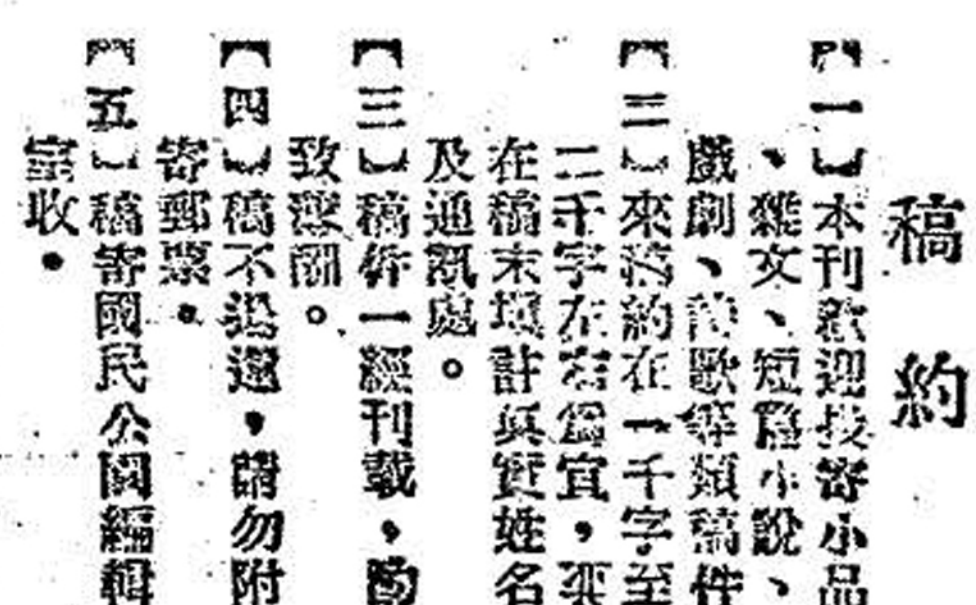 稿約
【一】本刊歡迎投寄小品
、雜文、短篇小說、
戲劇、詩歌等類稿件
【二】來稿約在一千字至
二千字左右為宜，
在稿末填註真實姓名
及通訊處。
【三】稿件一經刊載，
致酬。
【四】稿不退還，請勿附
寄郵票。
【五】稿寄國民公園編輯
室收。